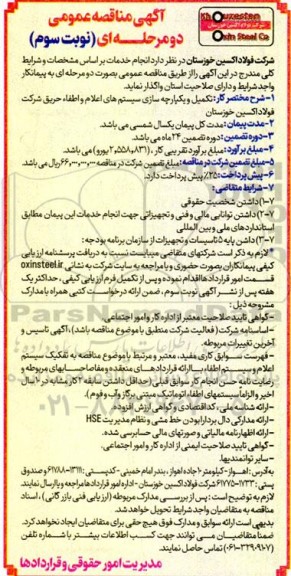 آگهی مناقصه عمومی
دو مرحله ای (نوبت سوم)
Khouzestan
Oxin Steel Co
شرکت فولاد اکسین خوزستان در نظر دارد انجام خدمات بر اساس مشخصات و شرایط
کلی مندرج در این آگهی را از طریق مناقصه عمومی بصورت دو مرحله ای به پیمانکار
واجد شرایط و دارای صلاحیت استان واگذار نماید.
۱- شرح مختصر کار: تکمیل و یکپارچه سازی سیستم های اعلام و اطفاء حریق شرکت
فولاد اکسین خوزستان
۲- مدت پیمان: مدت کل پیمان یکسال شمسی می باشد.
۳- دوره تضمین: دوره تضمین ۲۴ ماه می باشد.
۴- مبلغ برآورد: مبلغ برآورد تقریبی کار (۲,۵۵۸,۸۳۱ یورو) می باشد.
۵- مبلغ تضمین شرکت در مناقصه: مبلغ تضمین شرکت در مناقصه ریال می باشد.
۶- پیش پرداخت: ۲۵٪ پیش پرداخت دارد.
۷- شرایط متقاضی:
۷-۱) داشتن شخصیت حقوقی
۷-۲) داشتن توانایی مالی و فنی و تجهیزاتی جهت انجام خدمات این پیمان مطابق
استانداردهای ملی و بین المللی
۷-۳) داشتن پایه ۵ تاسیسات و تجهیزات از سازمان برنامه بودجه:
*لازم به ذکر است شرکتهای متقاضی میبایست نسبت به دریافت پرسشنامه ارزیابی
کیفی پیمانکاران بصورت حضوری و یا مراجعه به سایت شرکت به نشانی oxinsteel.ir
قسمت امور قراردادها اقدام نموده و پس از تکمیل فرم ارزیابی کیفی، حداکثر یک
هفته پس از نشر آگهی نوبت سوم، ضمن ارائه درخواست کتبی همراه با مدارک
مشروحه ذیل:
- گواهی تایید صلاحیت معتبر از اداره کار و امور اجتماعی.
- اساسنامه شرکت (فعالیت شرکت منطبق با موضوع مناقصه باشد)، آگهی تاسیس و
آخرین تغییرات مربوطه.
- فهرست سوابق کاری مفید، معتبر و مرتبط با موضوع مناقصه به تفکیک سیستم
اعلام و سیستم اطفاء، با ارائه قراردادهای منعقده و مفاصاحسابهای مربوطه و
رضایت نامه حسن انجام کار سوابق قبلی (حداقل داشتن سابقه ۲ کار مشابه در ۱۰ سال
اخیر و الزاماً سیستمهای اطفاء اتوماتیک مبتنی بر گاز و آب و فوم).
- ارائه شناسه ملی، کد اقتصادی و گواهی ارزش افزوده
- ارائه مدارکی دال بر دارا بودن خط مشی و نظام مدیریت HSE
- ارائه اظهارنامه مالیاتی و صورتهای مالی حسابرسی شده.
- گواهی تایید صلاحیت ایمنی از اداره کار و امور اجتماعی.
- سایر توانمندیها.
به آدرس: اهواز - کیلومتر ۱۰ جاده اهواز، بندر امام خمینی - کدپستی: و صندوق
پستی: شرکت فولاد اکسین خوزستان - اداره امور قراردادها مراجعه و یا ارسال نمایند.
لازم به توضیح است: پس از بررسی مدارک مربوطه (ارزیابی فنی بازرگانی)، اسناد
مناقصه به متقاضیان واجد شرایط تحویل خواهد شد.
بدیهی است ارائه سوابق و مدارک فوق هیچ حقی برای متقاضیان ایجاد نخواهد کرد.
ضمناً متقاضیان می توانند جهت کسب اطلاعات بیشتر با شماره تلفن
تماس حاصل نمایند.
مدیریت امور حقوقی و قراردادها